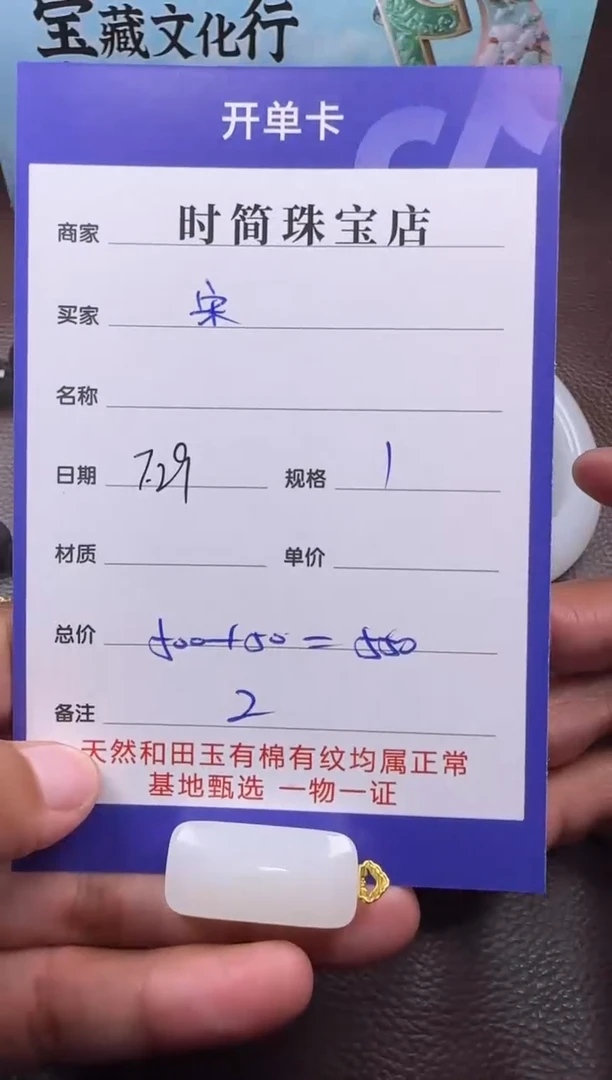 宝藏文化行
开单卡
商家 时简珠宝店
买家 宋
名称
日期 7.29 规格 1
材质 单价
总价 500+50=550
备注 2
天然和田玉有棉有纹均属正常
基地甄选 一物一证